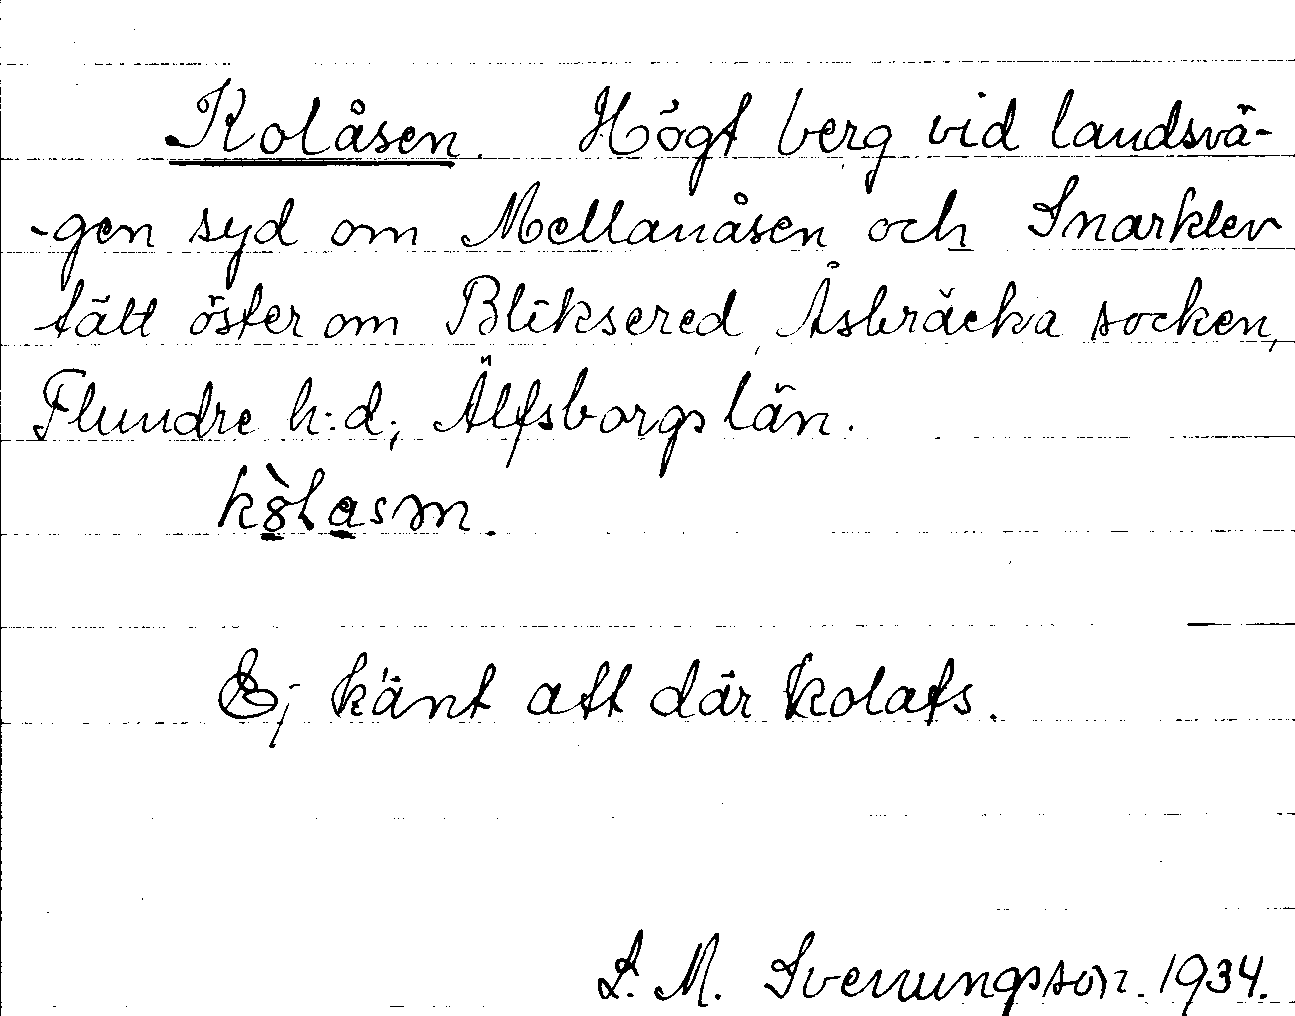 Kolåsen. Högt berg vid landsvä-
-gen syd om Mellanåsen och Snarklev
tätt öster om Bliksered, Åsbräcka socken,
Flundre h:d; Älfsborgs län.
Ej känt att där kolats.
S. M. Svenungsson. 1934.